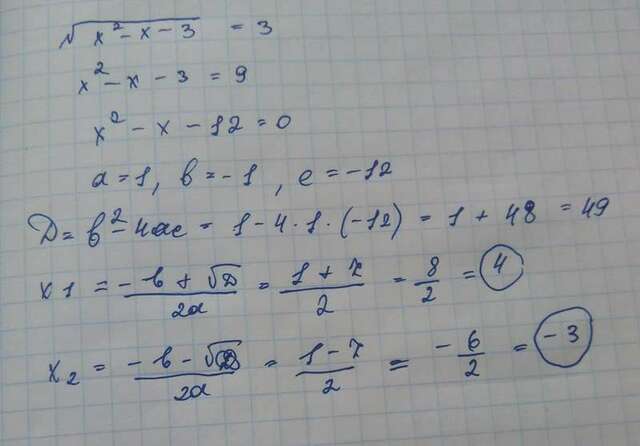 √(x² - x - 3) = 3
x² - x - 3 = 9
x² - x - 12 = 0
a = 1, b = -1, c = -12
D = b² - 4ac = 1 - 4 · 1 · (-12) = 1 + 48 = 49
x1 = (-b + √D)/2a = (1 + 7)/2 = 8/2 = 4
x2 = (-b - √D)/2a = (1 - 7)/2 = -6/2 = -3